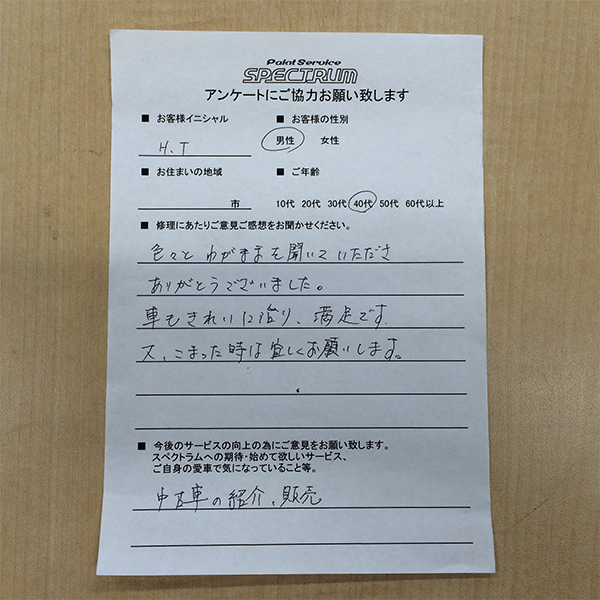 Paint Service
SPECTRUM
アンケートにご協力お願い致します
■ お客様イニシャル ■ お客様の性別
H.T 男性 女性
■ お住まいの地域 ■ ご年齢
市 10代 20代 30代 40代 50代 60代以上
■ 修理にあたりご意見ご感想をお聞かせください。
色々とわがままを聞いていただき
ありがとうございました。
車もきれいに治り、満足です.
又、こまった時は宜しくお願いします。
■ 今後のサービスの向上の為にご意見をお願い致します。
スペクトラムへの期待・始めて欲しいサービス、
ご自身の愛車で気になっていること等。
中古車の紹介、販売